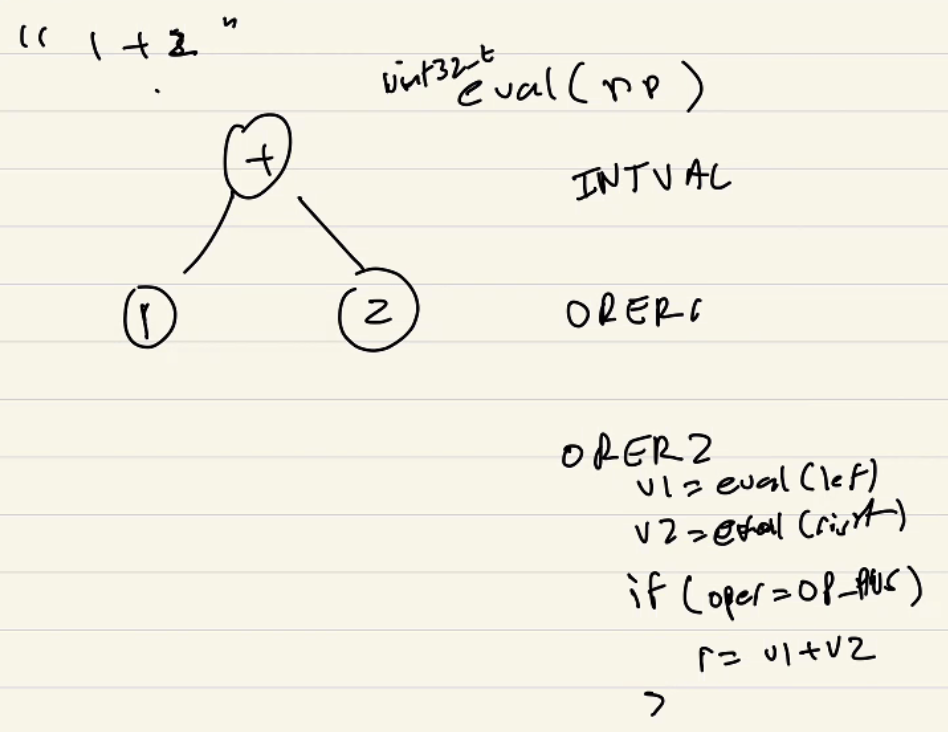 " 1 + 2 "
uint32_t eval(np)
+
INTVAL
1 2
OPER1
OPER2
v1 = eval(left)
v2 = eval(right)
if (oper = OP_PLUS)
r = v1 + v2
}